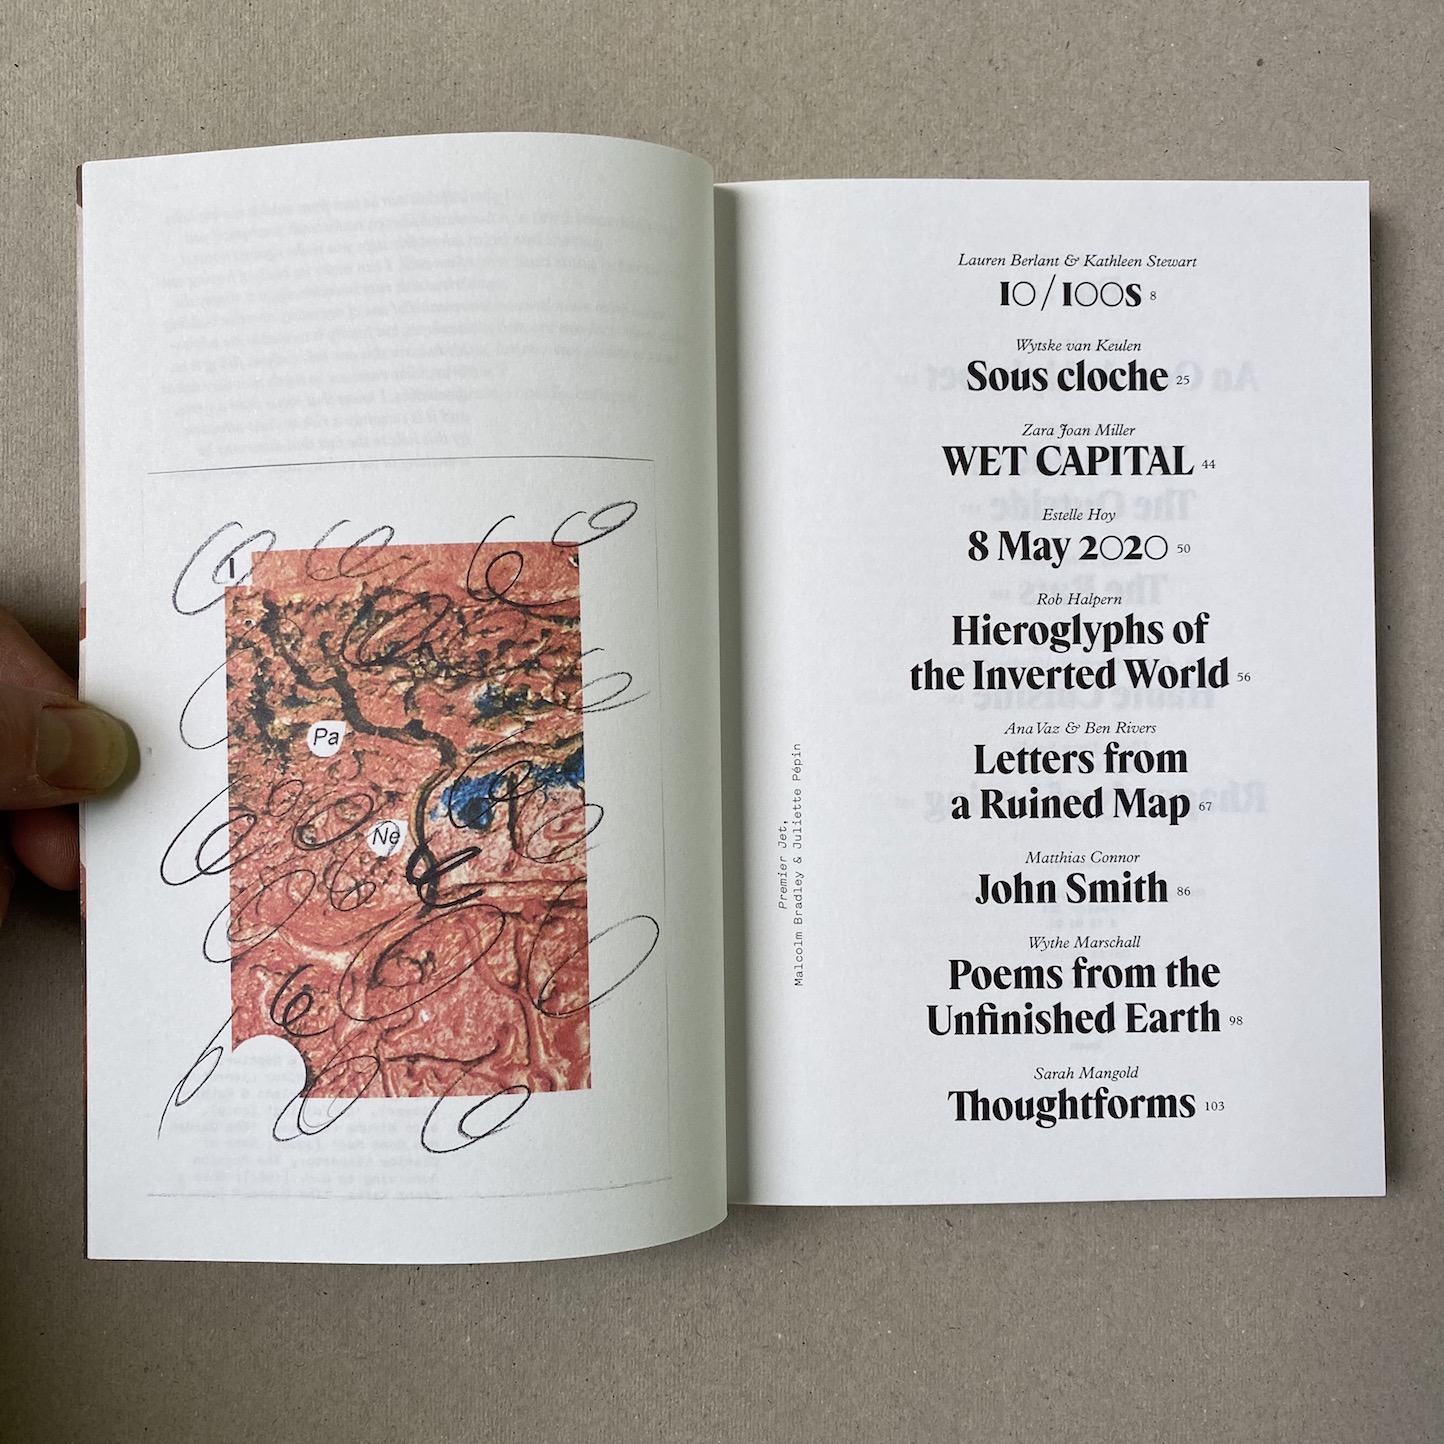 1
Pa
Ne
Premier Jet,
Malcolm Bradley & Juliette Pépin
Lauren Berlant & Kathleen Stewart
10/100s 8
Wytske van Keulen
Sous cloche 25
Zara Joan Miller
WET CAPITAL 44
Estelle Hoy
8 May 2020 50
Rob Halpern
Hieroglyphs of
the Inverted World 56
Ana Vaz & Ben Rivers
Letters from
a Ruined Map 67
Matthias Connor
John Smith 86
Wythe Marschall
Poems from the
Unfinished Earth 98
Sarah Mangold
Thoughtforms 103